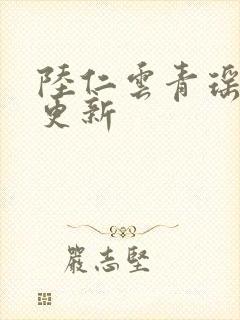 陸仁雲青瑶
更新
嚴志堅